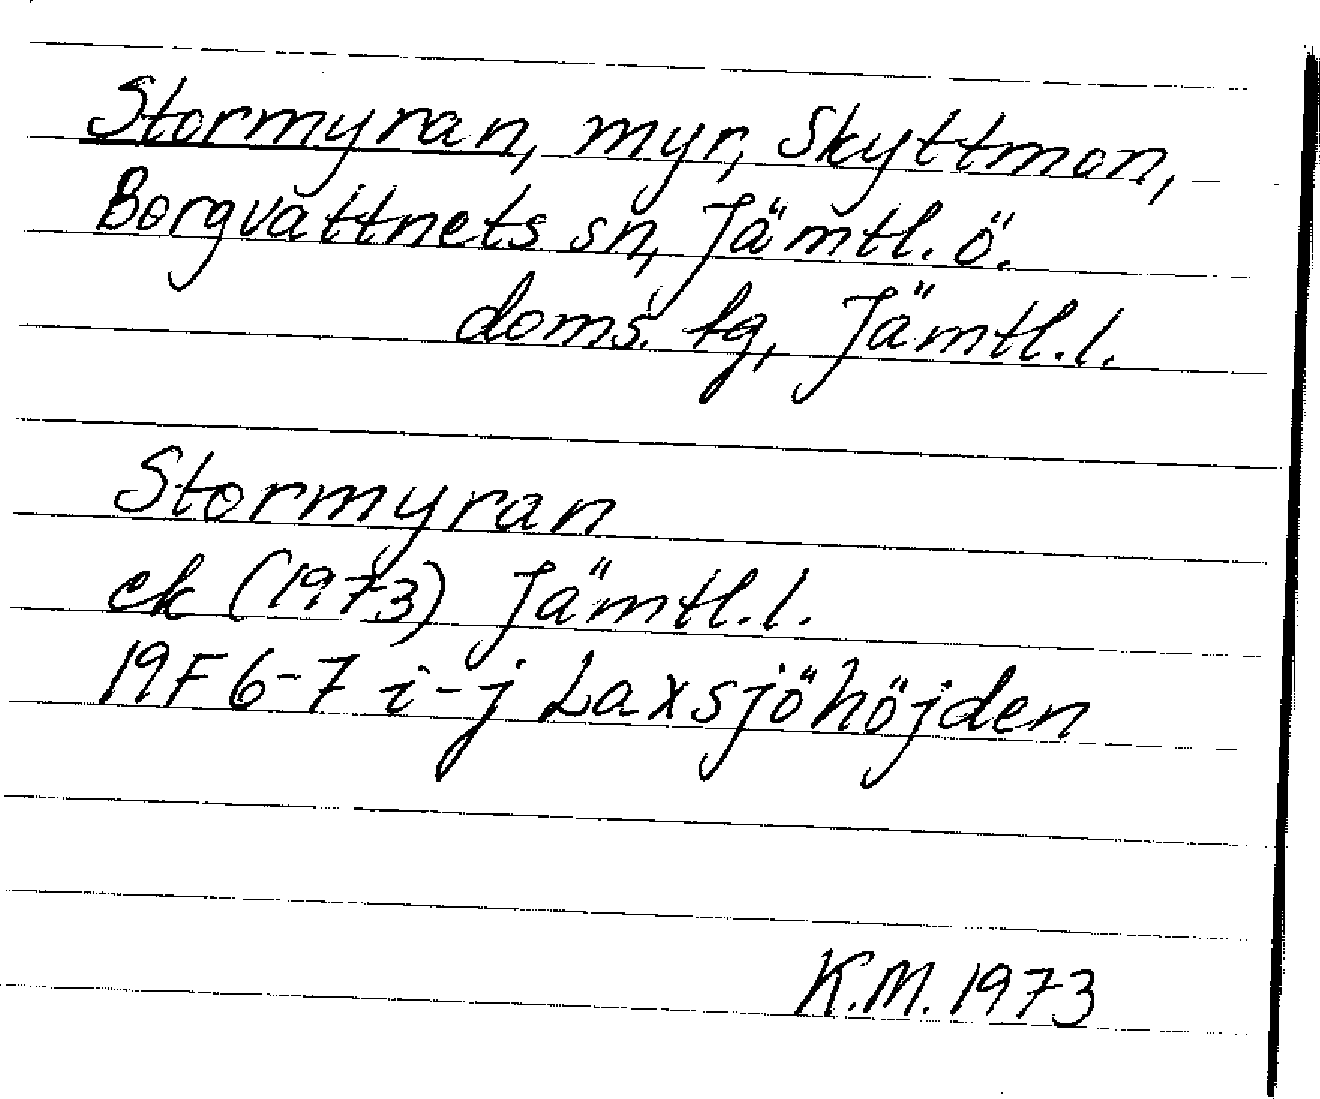 Stormyran, myr, Skyttmon,
Borgvattnets sn, Jämtl. ö.
doms. tg, Jämtl. l.
Stormyran
ek (1973) Jämtl. l.
19F 6-7 i-j Laxsjöhöjden
K.M. 1973